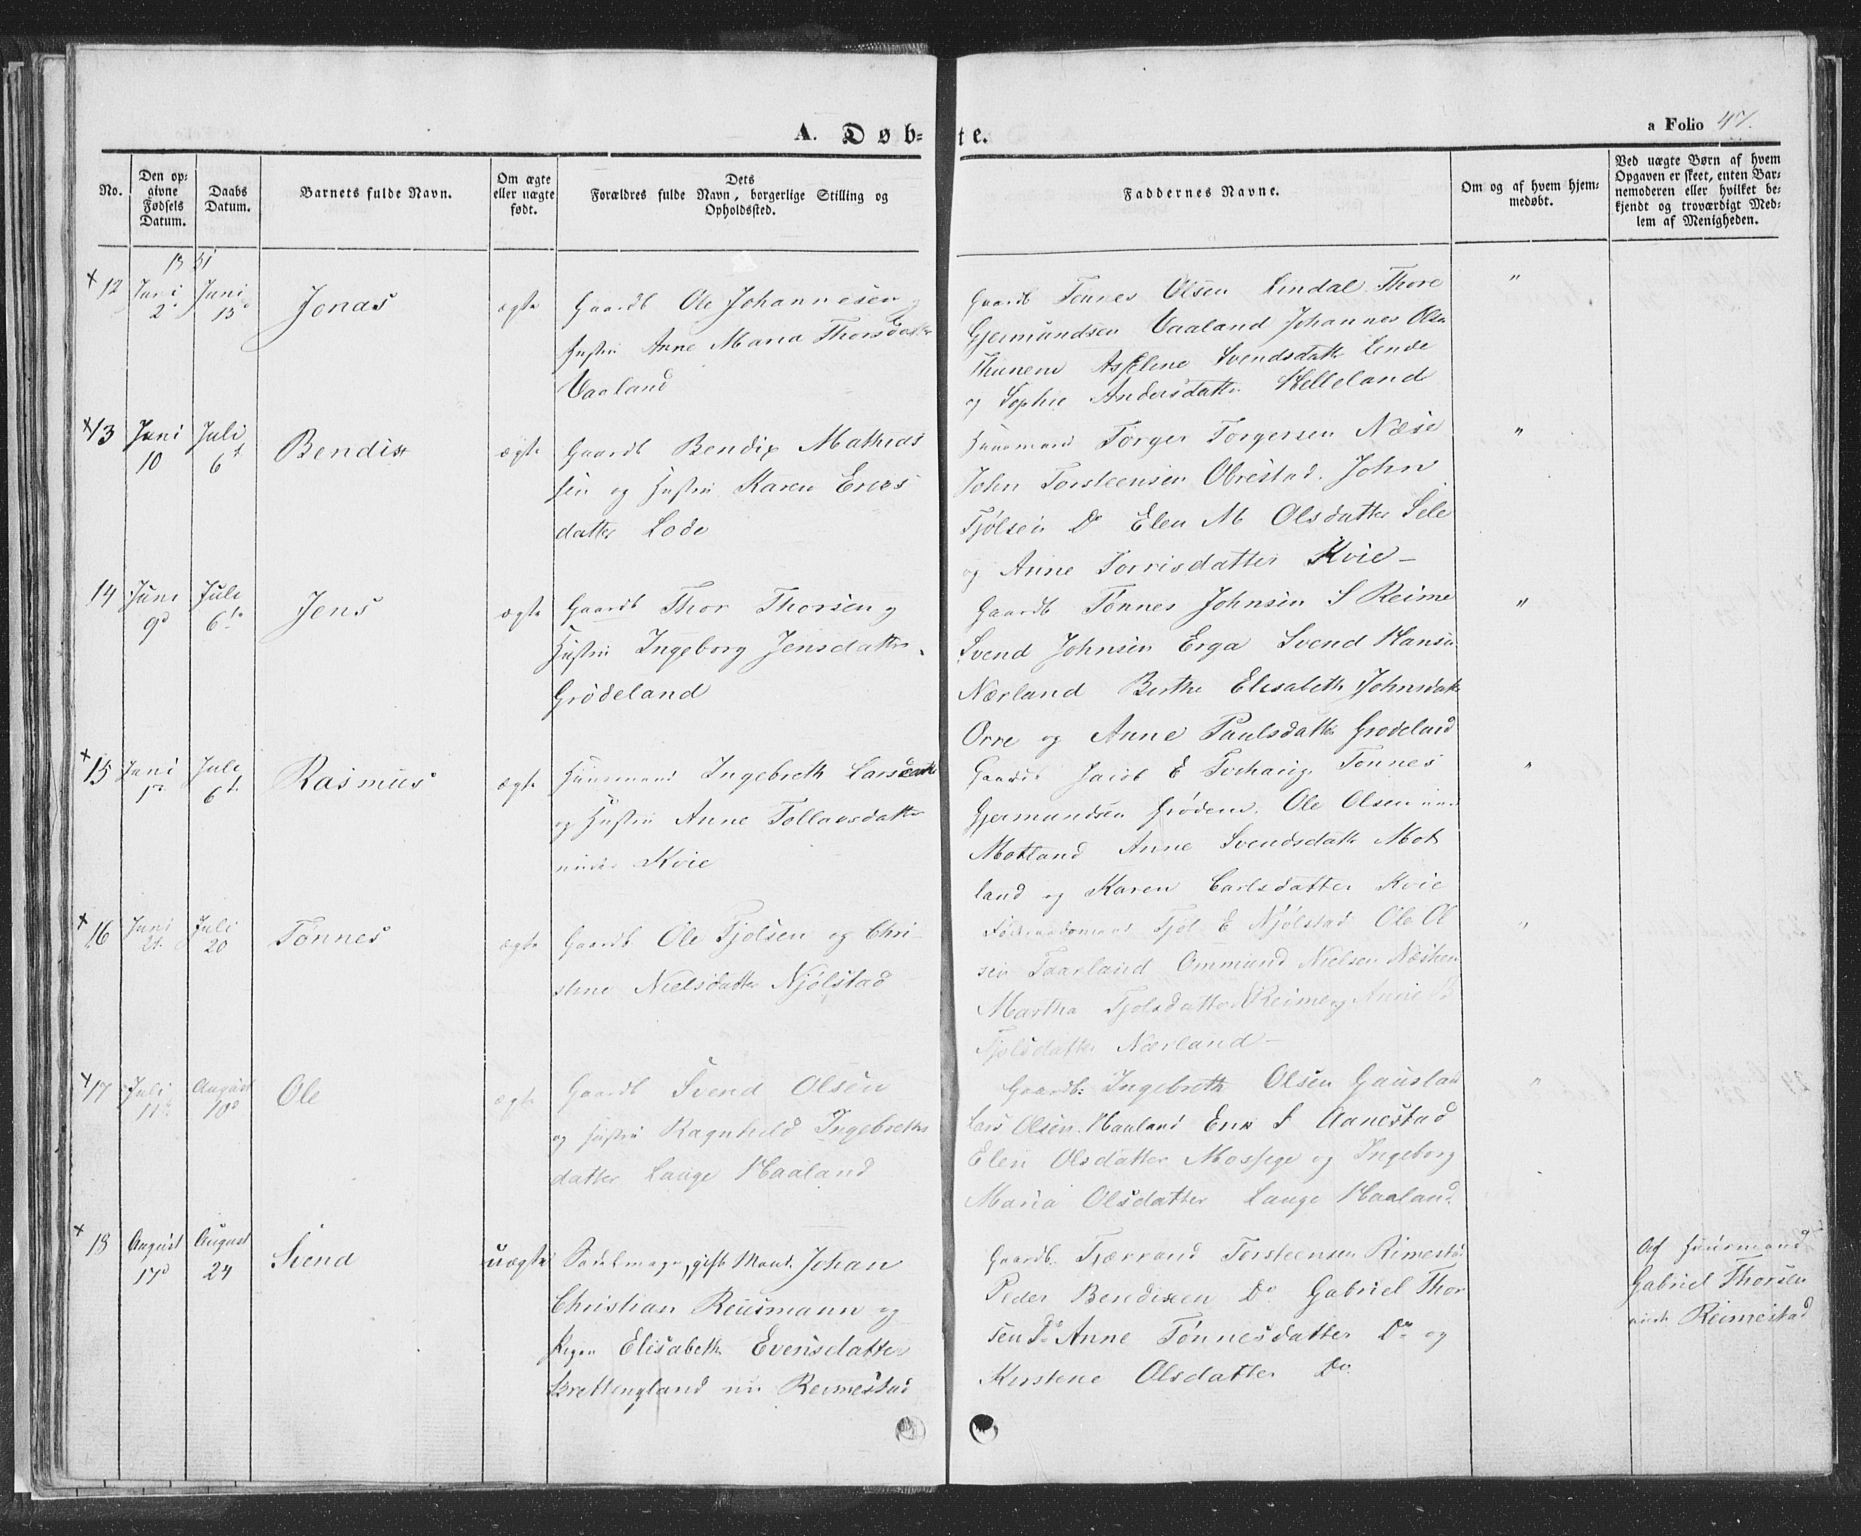 A. Døb-te.
a Folio 47.
No.
Den op-
givne
Fødsels
Datum.
Daabs
Datum.
Barnets fulde Navn.
Om ægte
eller uægte
født.
Dets
Forældres fulde Navn, borgerlige Stilling og
Opholdssted.
Faddernes Navne.
Om og af hvem hjem-
medøbt.
Ved uægte Børn af hvem
Opgaven er skeet, enten Bar-
nemoderen eller hvilket be-
kjendt og troværdigt Med-
lem af Menigheden.
12 Juni 2 Juni 15 Jonas ægte
Gaardb Ole Johannesen
Hustru Anne Maria Thorsdatter
Vaaland
Gaardb Tønnes Olsen Lindal Thore
Gjermundsen Vaaland Johannes Olsn
Thunem Svendsdatt Lende
og Sophie Andersdatter Helleland
"
13 Juni 10 Juli 6t Bendix ægte
Gaardb Bendix Mathias
sen og Hustru Karen Erics
datter Lode
Huusmand Torger Torgersen Næse
John Torsteensen Obrestad. John
Tjølsen Do Elen M Olsdatter Sele
og Anne Torrisdatter Kvie –
"
14 Juni 9d Juli 6te Jens ægte
Gaardb Thor Thorsen og
Hustru Ingeborg Jensdatter
Grødeland
Gaardb Tønnes Johnsen S Reime
Svend Johnsen Erga Svend Hansn
Nærland Berthe Elisabeth Johnsdatt
Orre og Anne Paulsdatter Grødeland
"
15 Juni Juli 6t Rasmus ægte
Huusmand Ingebreth Larsen
og Hustru Anne Tollavsdatter
under Kvie
Gaardb Jacob E Tønnes
Gjermundsen Grødem. Ole Olsen und
Motland Anne Svendsdatt Mot
land og Karen Carlsdatter Kvie
"
16 Juni 21. Juli 20 Tønnes ægte
Gaardb Ole Tjølsen og Chri
stine Nielsdatter Njølstad
Tjøl E Njølstad Ole Ol
sen Taarland Ommund Nielsen
Martha Tjølsdatter Reime og Anne
Tjølsdatter Nærland –
"
17 Juli 11te August 10d Ole ægte
Gaardb Svend Olsen
og Hustru Ragnhild Ingebreths
datter Lauge Haaland
Gaardb: Ingebreth Olsen Gausland
Lars Olsen Haaland Erik S Aanestad
Elen Olsdatter Mossige og Ingeborg
Maria Olsdatter Lauge Haaland
"
18 August 17d August 24 Svend uægte
Sadelmager, gift Mand. Johan
Christian Reusmann og
Pigen Elisabeth Evensdatter
Brettingland nu Reimestad
Gaardb. Tjærrand Torsteensen Rimestad
Peder Bendixen Do Gabriel Thor
sen Do Anne Tønnesdatter Do og
Kirstene Olsdatter Do.
Af Huusmand
Gabriel Thorsen
under Reimestad